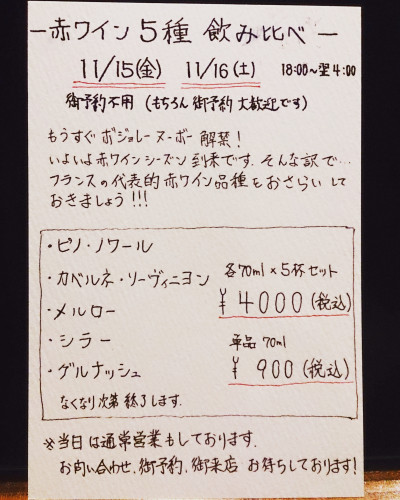 ー赤ワイン 5種 飲み比べー
11/15(金) 11/16(土) 18:00〜翌4:00
御予約不用(もちろん御予約大歓迎です)
もうすぐボジョレーヌーボー解禁!
いよいよ赤ワインシーズン到来です。そんな訳で…
フランスの代表的赤ワイン品種をおさらいして
おきましょう!!!
・ピノ・ノワール
・カベルネ・ソーヴィニヨン 各70ml×5杯セット
・メルロー ¥4000(税込)
・シラー 単品 70ml
・グルナッシュ ¥900(税込)
なくなり次第終了します。
※当日は通常営業もしております。
お問い合わせ、御予約、御来店 お待ちしております!